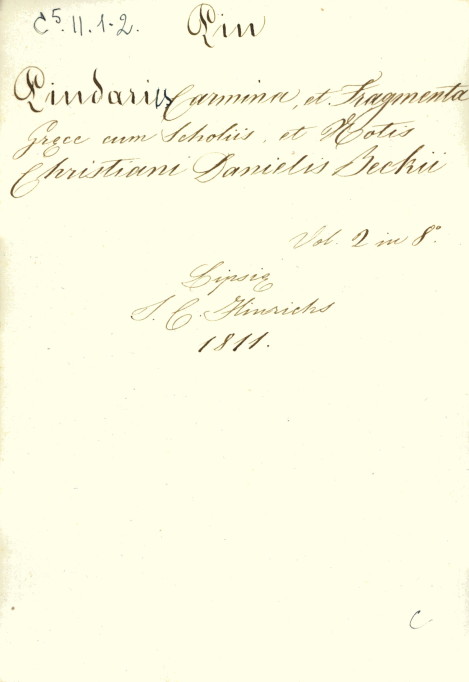 C⁵.11.1-2. Pin
Pindarus Carmina, et Fragmenta
Gręce cum Scholiis, et Notis
Christiani Danielis Beckii
Vol. 2 in 8°.
Lipsię
I. C. Hinrichs
1811.
C